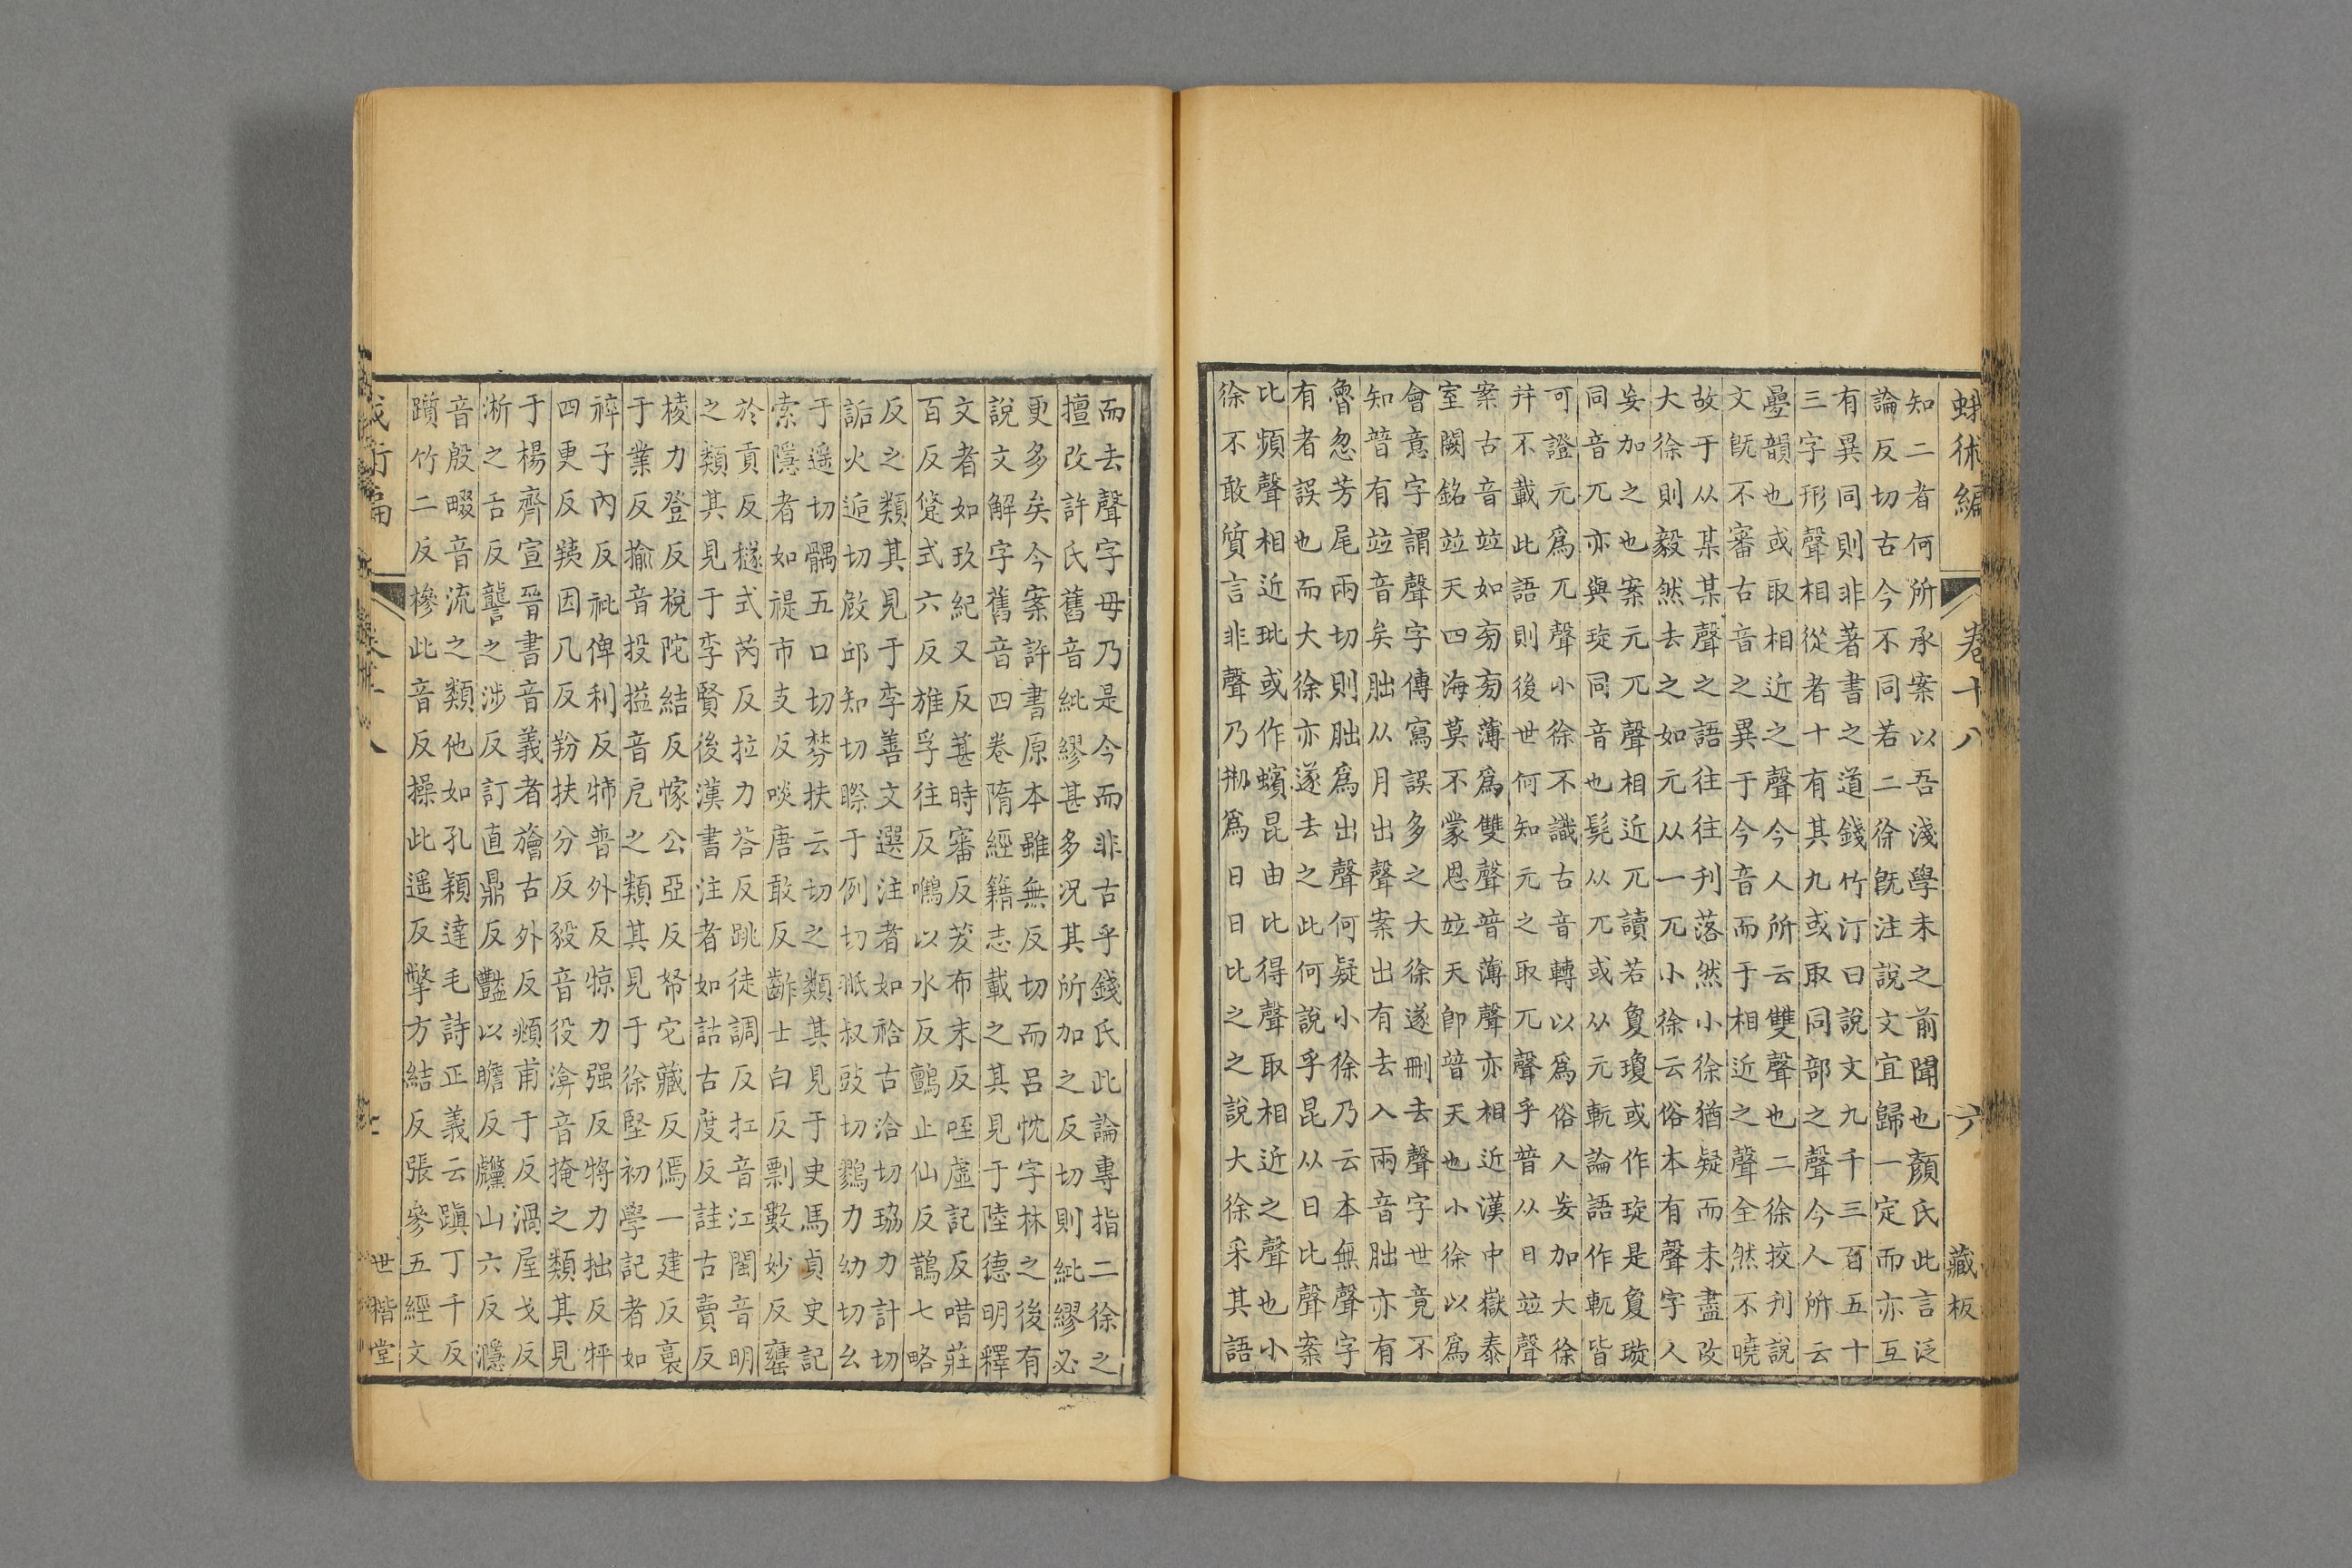 蛾術編 卷十八 六 藏板
知二者何所承案以吾淺學未之前聞也顏氏此言泛
論反切古今不同若二徐旣注說文宜歸一定而亦互
有異同則非著書之道錢竹汀曰說文九千三百五十
三字形聲相從者十有其九或取同部之聲今人所云
疊韻也或取相近之聲今人所云雙聲也二徐挍刊說
文旣不審古音之異于今音而于相近之聲全然不曉
故于从某某聲之語往往刊落然小徐猶疑而未盡改
大徐則毅然去之如元从一兀小徐云俗本有聲字人
妄加之也案元兀聲相近兀讀若敻瓊或作琁是敻璇
同音兀亦與琁同音也髡从兀或从元軏論語作軏皆
可證元爲兀聲小徐不識古音轉以爲俗人妄加大徐
并不載此語則後世何知元之取兀聲乎普从日竝聲
案古音竝如㫄㫄薄爲雙聲普薄聲亦相近漢中嶽泰
室闕銘竝天四海莫不蒙恩竝天卽普天也小徐以爲
會意字謂聲字傳寫誤多之大徐遂刪去聲字世竟不
知普有竝音矣朏从月出聲案出有去入兩音朏亦有
魯忽芳尾兩切則朏爲出聲何疑小徐乃云本無聲字
有者誤也而大徐亦遂去之此何說乎昆从日比聲案
比頻聲相近玭或作蠙昆由比得聲取相近之聲也小
徐不敢質言非聲乃刱爲日日比之之說大徐采其語
而去聲字毋乃是今而非古乎錢氏此論專指二徐之
擅改許氏舊音紕繆甚多况其所加之反切則紕繆必
更多矣今案許書原本雖無反切而呂忱字林之後有
說文解字舊音四卷隋經籍志載之其見于陸德明釋
文者如玖紀又反葚時審反茇布末反咥虛記反唶莊
百反筵式六反雄孚往反鴫以水反鸇止仙反鵲七略
反之類其見于李善文選注者如祫古洽切珕力計切
詬火逅切啟邱知切瞭于例切䀡叔豉切鷚力幼切幺
于遥切髃五口切棼扶云切之類其見于史馬貞史記
索隱者如禔市支反啖唐敢反齰士白反剽數妙反罋
於貢反檖式芮反拉力荅反跳徒調反扛音江閩音明
之類其見于李賢後漢書注者如詁古度反詿古賣反
棱力登反梲陀結反㡓公亞反帑它藏反傿一建反裏
于業反揄音投搤音戹之類其見于徐堅初學記者如
祽子內反祉俾利反㹃普外反㹁力强反㸹力拙反牸
四更反羠因几反羒扶分反羖音役渰音掩之類其見
于楊齊宣晉書音義者旝古外反頫甫于反渦屋戈反
淅之舌反讋之涉反訂直鼎反豔以瞻反㸝山六反濦
音殷畷音流之類他如孔穎達毛詩正義云蹎丁千反
躓竹二反槮此音反操此遥反擎方結反張參五經文
世楷堂